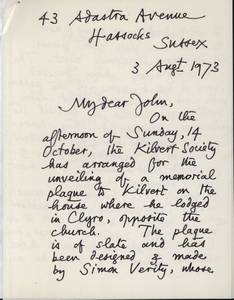 43 Adastra Avenue
Hassocks
Sussex
3 Augt 1973
My dear John,
On the
afternoon of Sunday, 14
October, the Kilvert Society
has arranged for the
unveiling of a memorial
plaque to Kilvert on the
house where he lodged
in Clyro, opposite the
church. The plaque
is of slate and has
been designed & made
by Simon Verity, whose